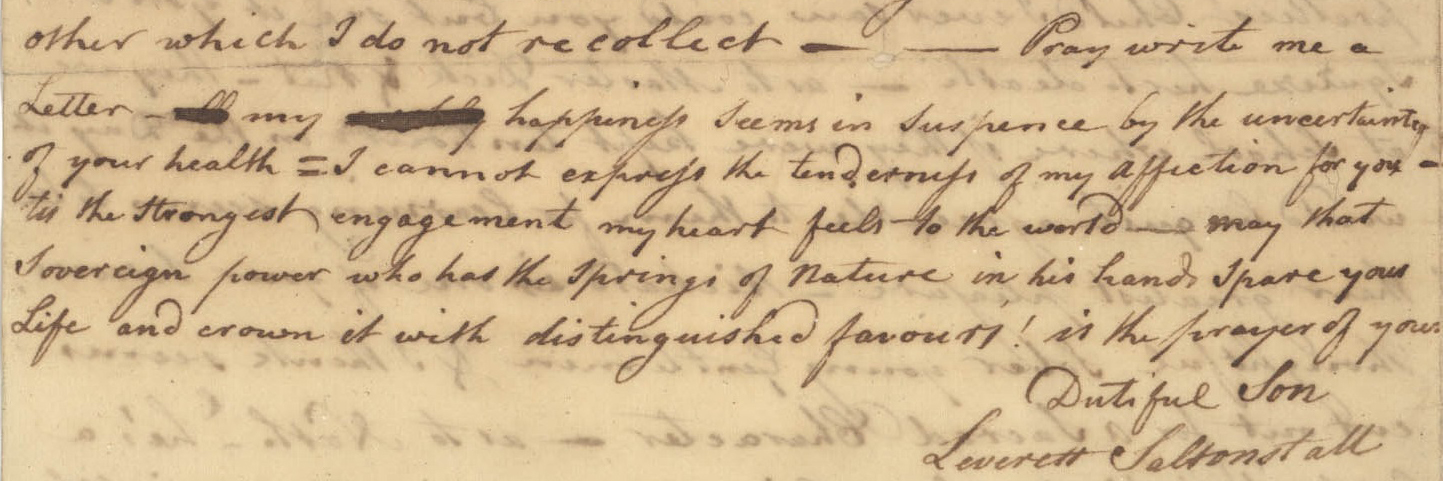 other which I do not recollect — — Pray write me a
Letter – my happiness seems in suspence by the uncertainty
of your health = I cannot express the tenderness of my affection for you –
tis the strongest engagement my heart feels to the world — may that
Sovereign power who has the springs of Nature in his hands spare your
Life and crown it with distinguished favours! is the prayer of your
Dutiful Son
Leverett Saltonstall